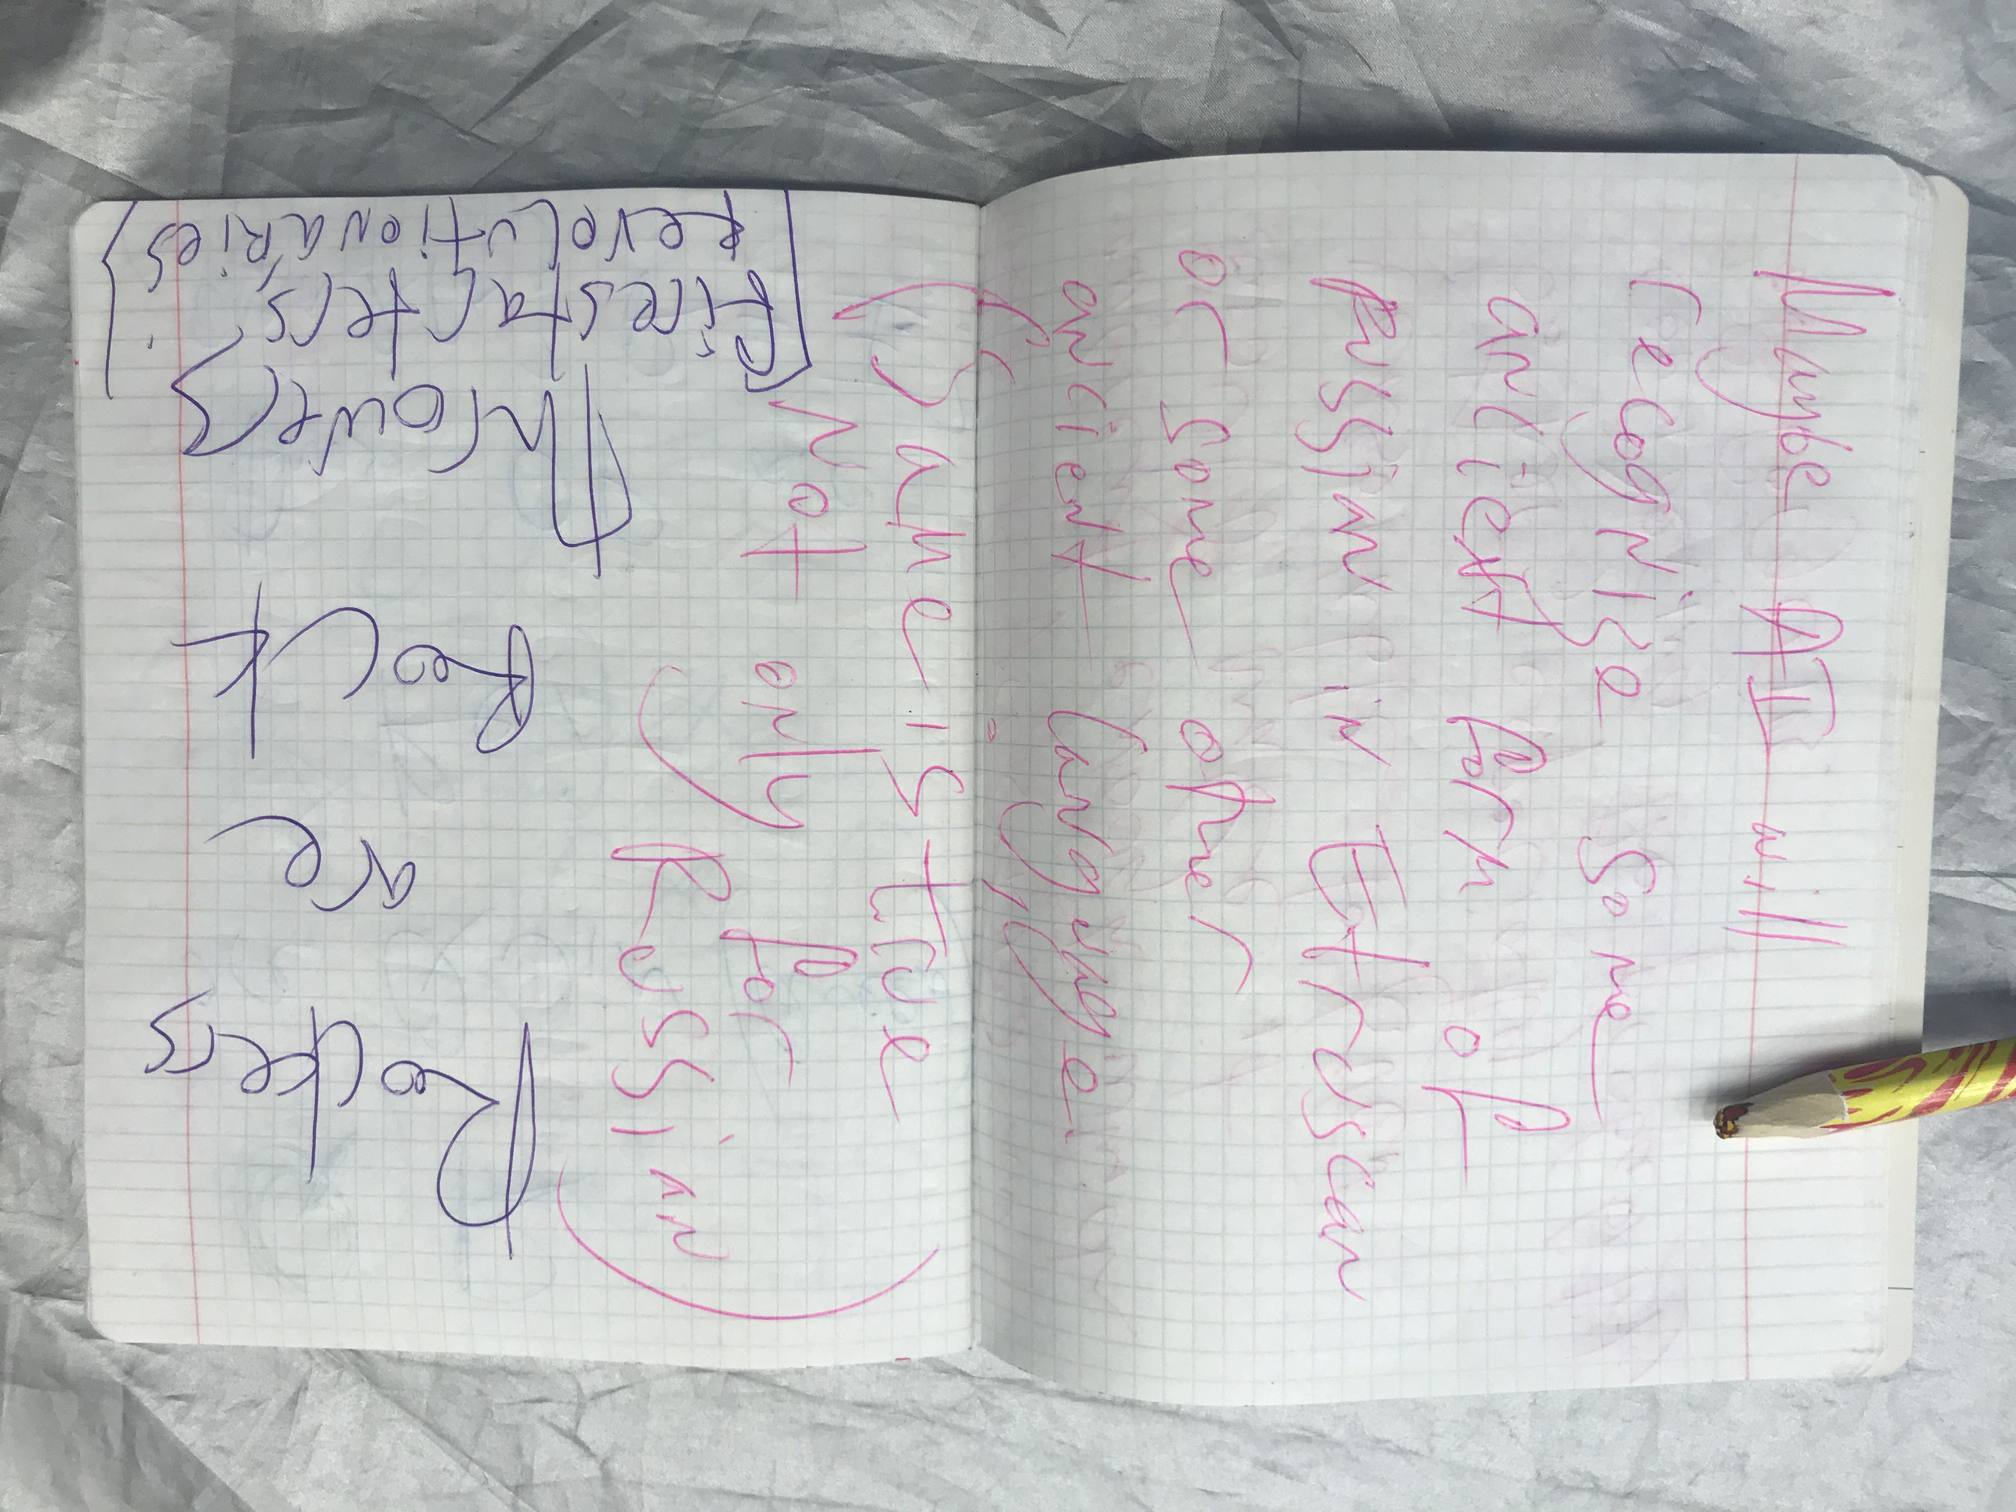 Maybe AI will
recognise some
ancient form of
Russian in Etruscan
or some other
ancient language.
(Same is true
Not only for
Russian)
Rockers
are
Rock
Throwers
[Firestarters,
revolutionaries}